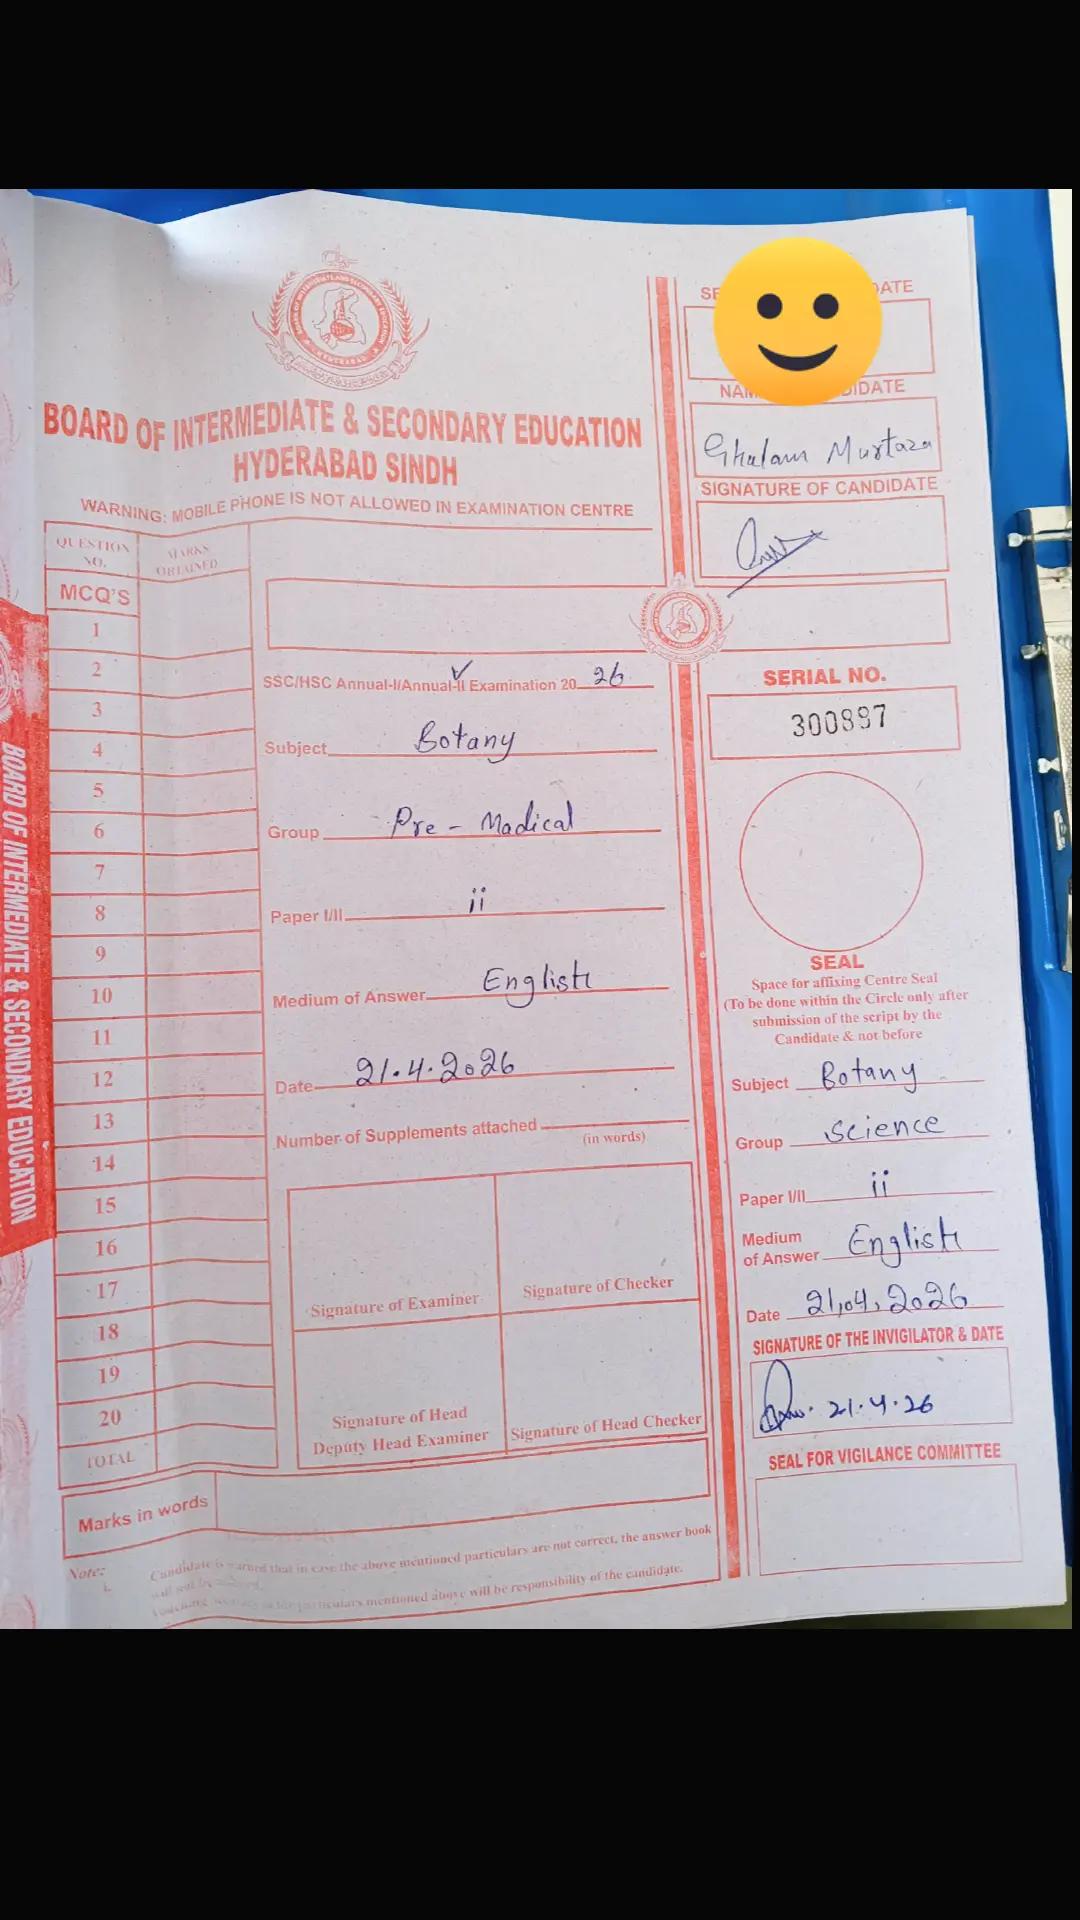 BOARD OF INTERMEDIATE & SECONDARY EDUCATION
HYDERABAD SINDH
WARNING: MOBILE PHONE IS NOT ALLOWED IN EXAMINATION CENTRE
QUESTION NO.
MARKS OBTAINED
MCQ'S
1
2
3
4
5
6
7
8
9
10
11
12
13
14
15
16
17
18
19
20
TOTAL
Marks in words
SSC/HSC Annual-I/Annual-II Examination 2026
Subject Botany
Group Pre - Madical
Paper I/II ii
Medium of Answer English
Date 21.4.2026
Number of Supplements attached
(in words)
Signature of Examiner
Signature of Checker
Signature of Head
Deputy Head Examiner
Signature of Head Checker
Note:
i. Candidate is warned that in case the above mentioned particulars are not correct, the answer book
will not be
particulars mentioned above will be responsibility of the candidate.
CANDIDATE
Ghulam Murtaza
SIGNATURE OF CANDIDATE
SERIAL NO.
300887
SEAL
Space for affixing Centre Seal
(To be done within the Circle only after
submission of the script by the
Candidate & not before
Subject Botany
Group science
Paper I/II ii
Medium
of Answer English
Date 21,04,2026
SIGNATURE OF THE INVIGILATOR & DATE
21.4.26
SEAL FOR VIGILANCE COMMITTEE
BOARD OF INTERMEDIATE & SECONDARY EDUCATION